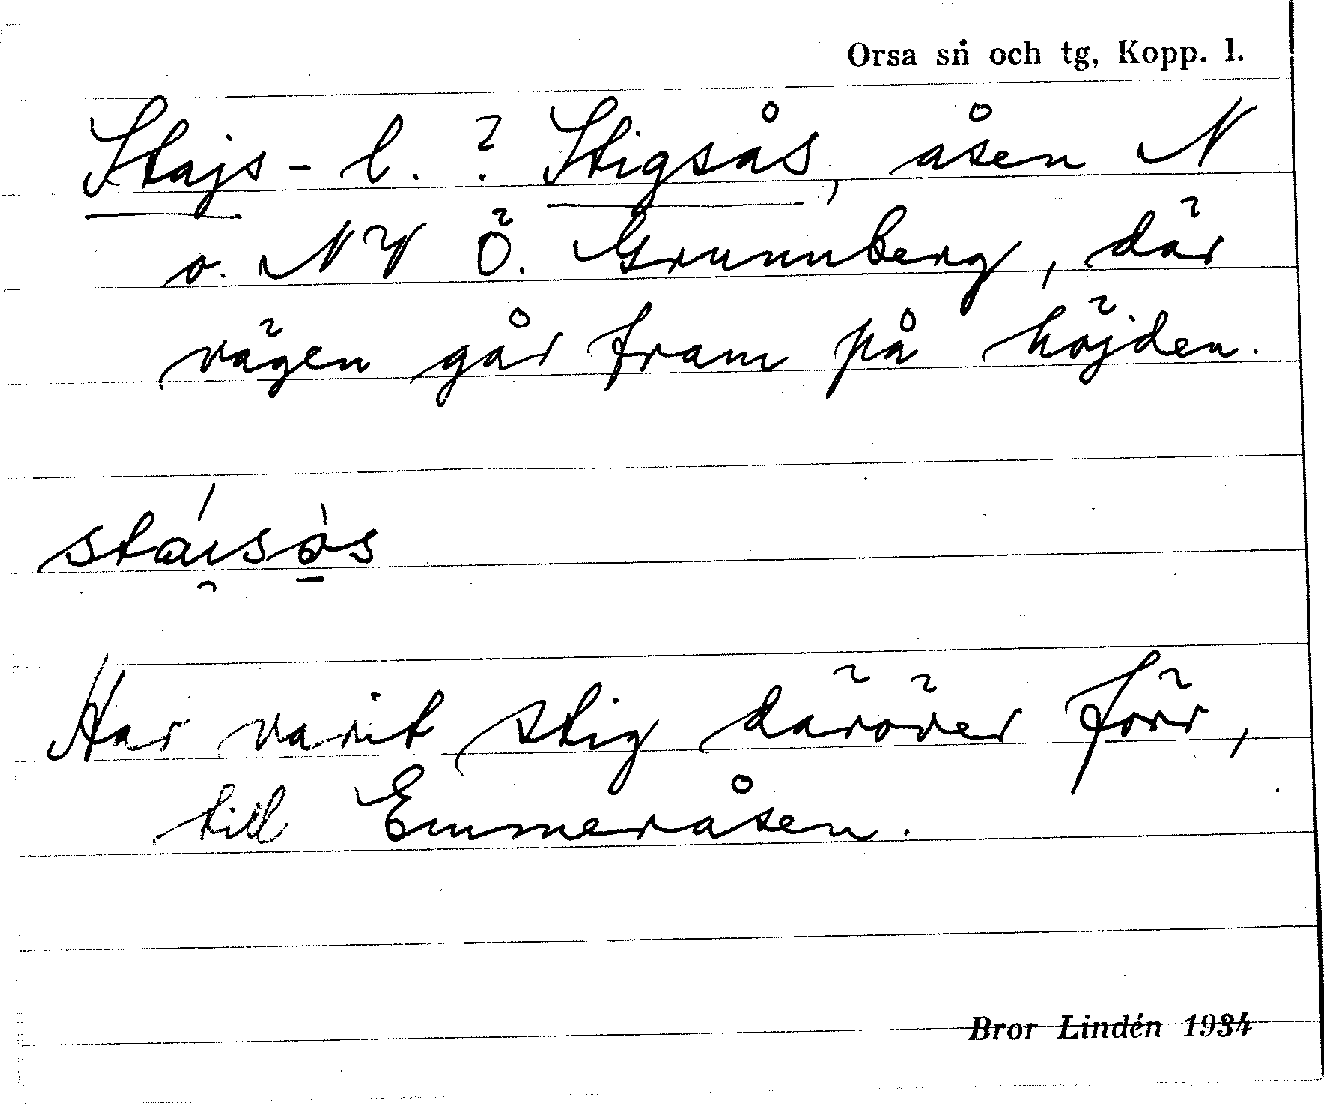 Orsa sn och tg, Kopp. l.
Stajs- l. ? Stigsås, åsen N
o. NV Ö. Grunuberg, där
vägen går fram på höjden.
stáɪ̯sò̠s
Har varit stig däröver förr,
till Emmeråsen.
Bror Lindén 1934